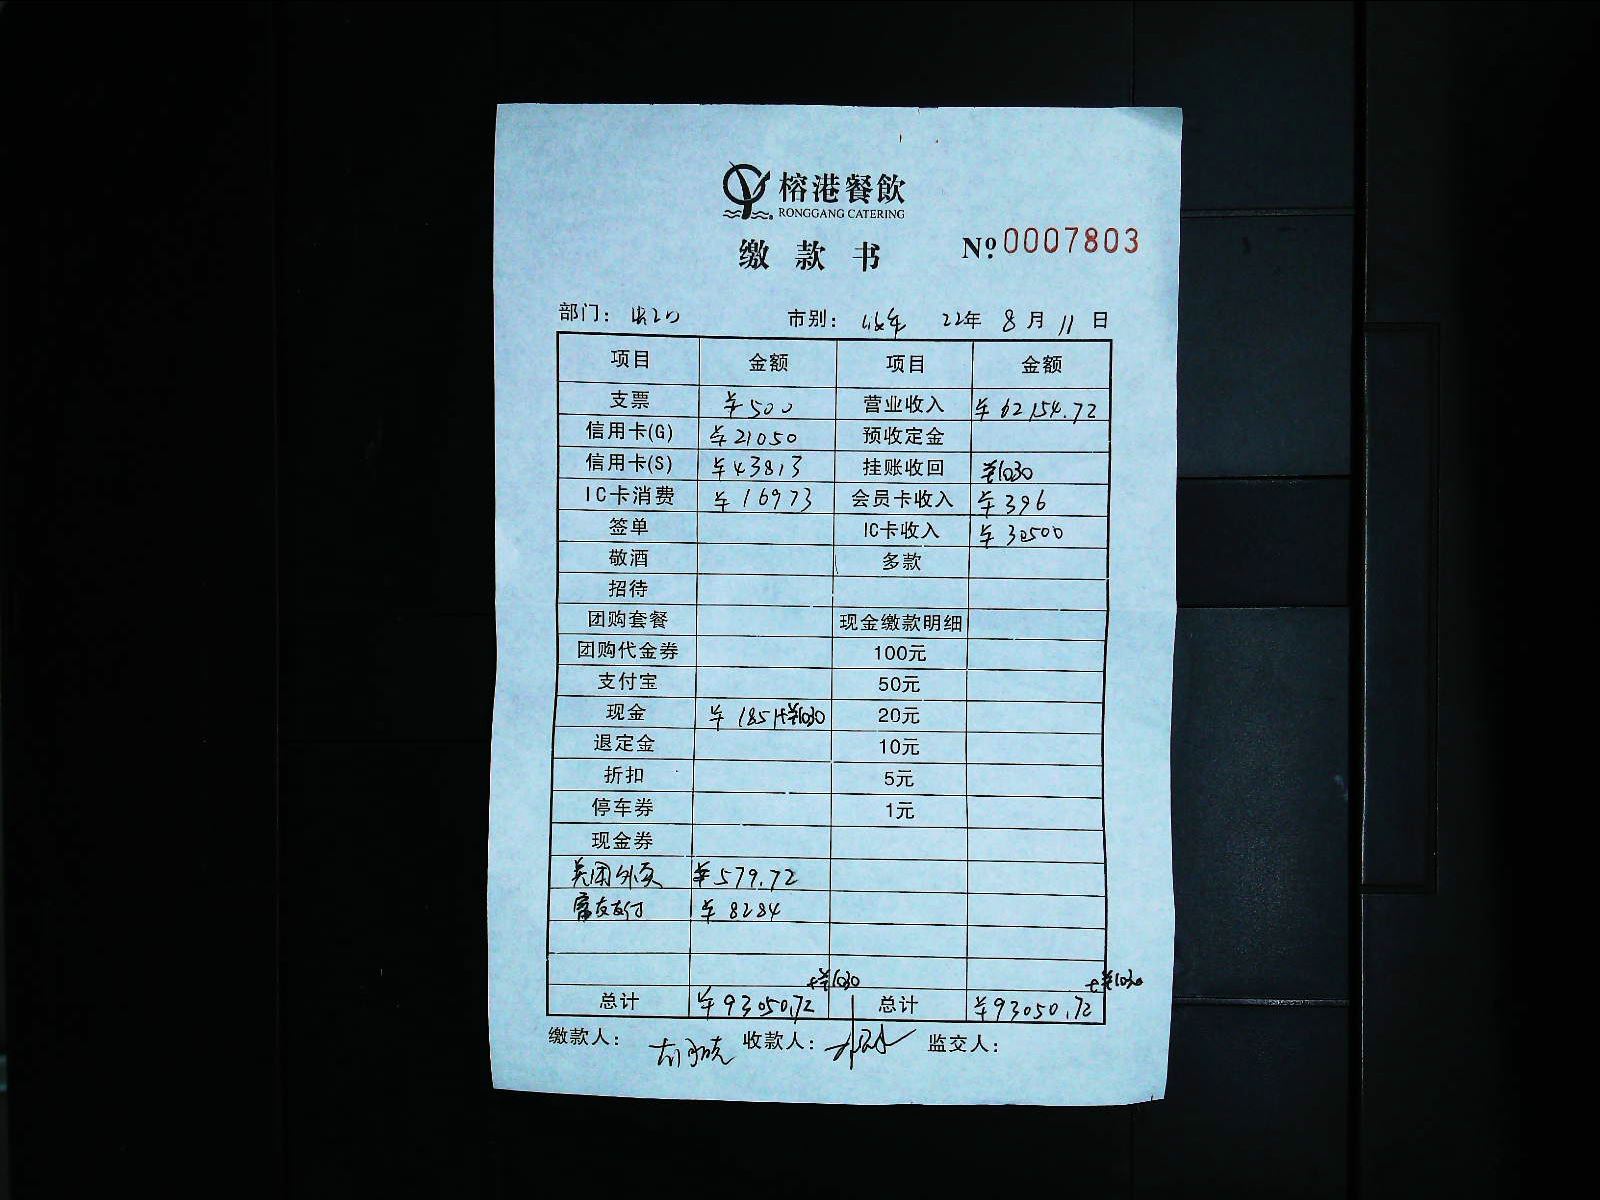 榕港餐飲
RONGGANG CATERING
缴款书 Nº 0007803
部门： 市别： 22年 8月 11日
项目 金额 项目 金额
支票 ¥500 营业收入 ¥62154.72
信用卡(G) ¥21050 预收定金
信用卡(S) ¥43813 挂账收回 ¥1030
IC卡消费 ¥16973 会员卡收入 ¥396
签单 IC卡收入 ¥30500
敬酒 多款
招待
团购套餐 现金缴款明细
团购代金券 100元
支付宝 50元
现金 ¥1851+¥1030 20元
退定金 10元
折扣 5元
停车券 1元
现金券
美团外卖 ¥579.72
支付 ¥8284
+¥1030 +¥1030
总计 ¥93050.72 总计 ¥93050.72
缴款人： 收款人： 监交人：